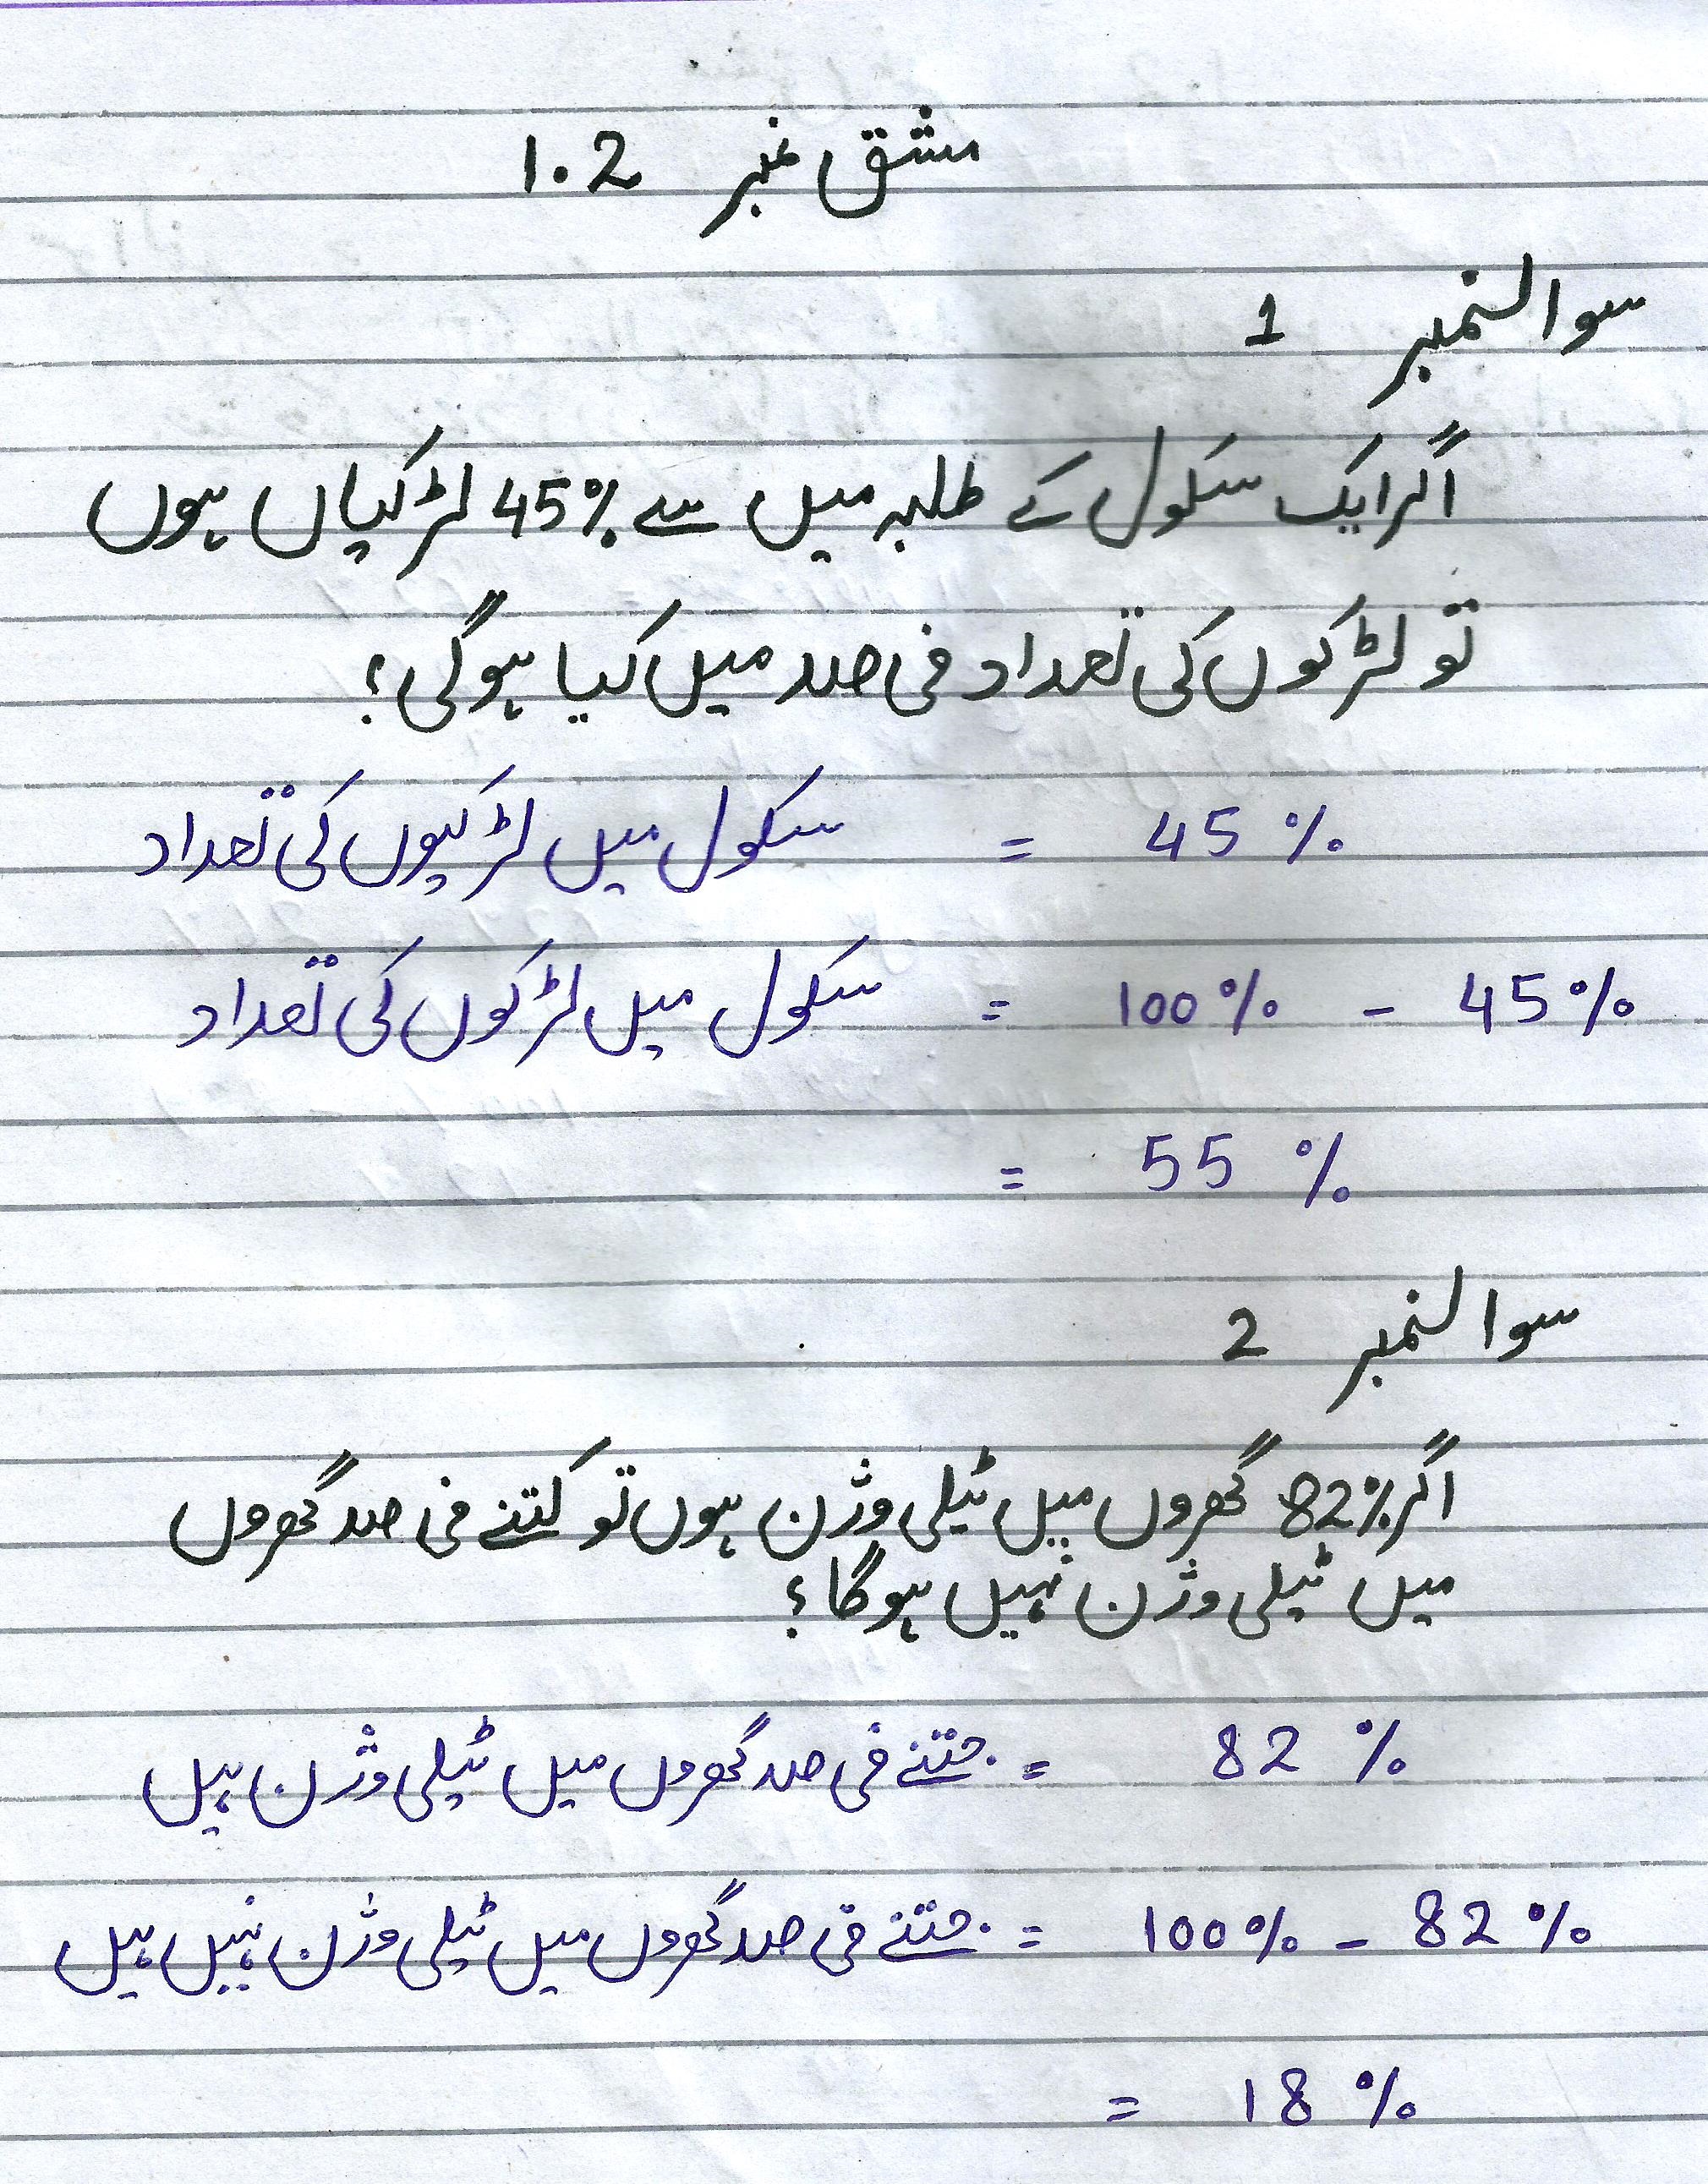 مشق نمبر 1.2
سوالنمبر 1
اگر ایک سکول کے طلبہ میں سے 45% لڑکیاں ہوں
تو لڑکوں کی تعداد فی صد میں کیا ہوگی؟
سکول میں لڑکیوں کی تعداد = 45 %
سکول میں لڑکوں کی تعداد = 100% - 45%
= 55 %
سوالنمبر 2
اگر 82% گھروں میں ٹیلی وژن ہوں تو کتنے فی صد گھروں
میں ٹیلی وژن نہیں ہوگا؟
جتنے فی صد گھروں میں ٹیلی وژن ہیں = 82 %
جتنے فی صد گھروں میں ٹیلی وژن نہیں ہیں = 100% - 82%
= 18 %